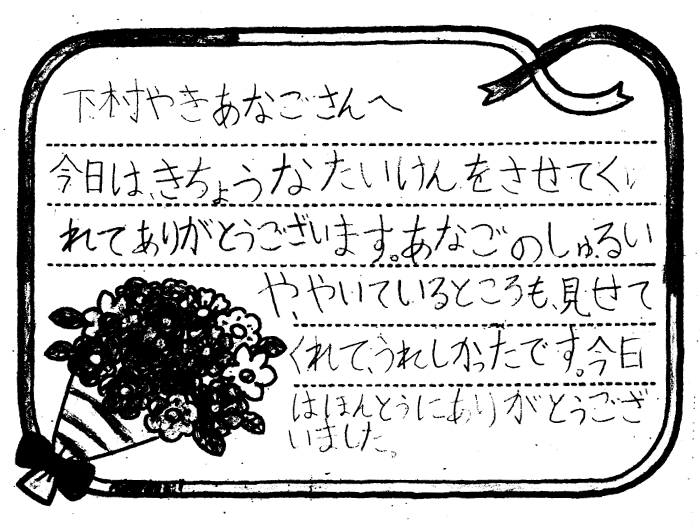 下村やきあなごさんへ
今日は、きちょうなたいけんをさせてく
れてありがとうございます。あなごのしゅるい
や、やいているところも、見せて
くれて、うれしかったです。今日
はほんとうにありがとうござ
いました。